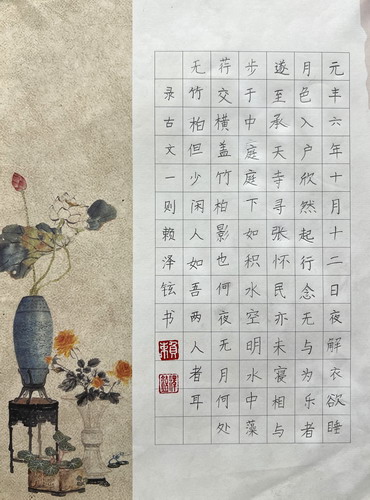 元丰六年十月十二日夜解衣欲睡
月色入户欣然起行念无与为乐者
遂至承天寺寻张怀民亦未寝相与
步于中庭庭下如积水空明水中藻
荇交横盖竹柏影也何夜无月何处
无竹柏但少闲人如吾两人者耳
录古文一则赖泽铉书